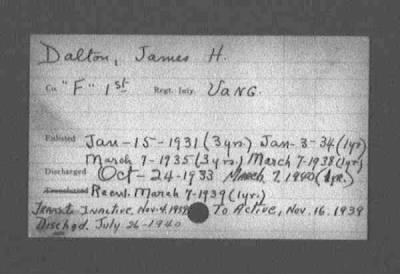 Dalton, James H.
Co. "F" 1st Regt. Infy. VANG.
Enlisted Jan-15-1931 (3yrs) Jan-3-34 (1yr)
March 7-1935 (3yrs.) March 7-1938 (1yr)
Discharged Oct-24-1933 March, 7, 1940 (1yr.)
Reenl. March 7-1939 (1yr.)
Transf to Inactive, Nov. 4. 1939 To Active, Nov. 16. 1939
Dischgd. July 26-1940